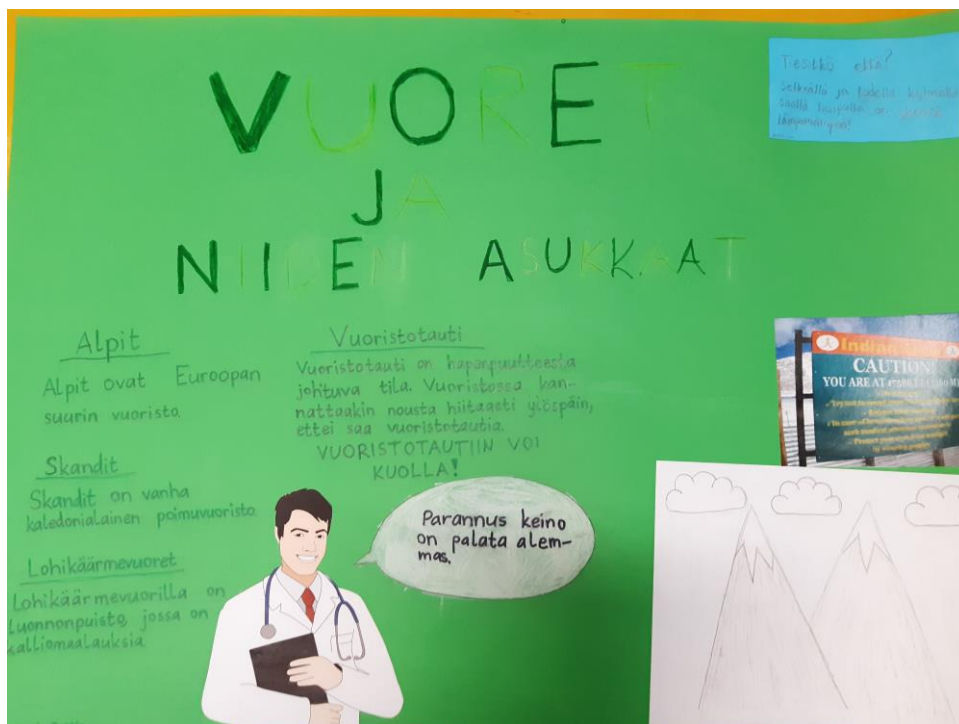 VUORET
JA
NIIDEN ASUKKAAT
Tiesitkö että?
Selkeällä ja todella kylmällä
säällä on
Alpit
Alpit ovat Euroopan
suurin vuoristo
Skandit
Skandit on vanha
kaledonialainen poimuvuoristo.
Lohikäärmevuoret
Lohikäärmevuorilla on
luonnonpuisto, jossa on
kalliomaalauksia.
Vuoristotauti
Vuoristotauti on hapenpuutteesta
johtuva tila. Vuoristossa kan-
nattaakin nousta hitaasti ylöspäin,
ettei saa vuoristotautia.
VUORISTOTAUTIIN VOI
KUOLLA!
Parannus keino
on palata alem-
mas.
Indian
CAUTION
YOU ARE AT